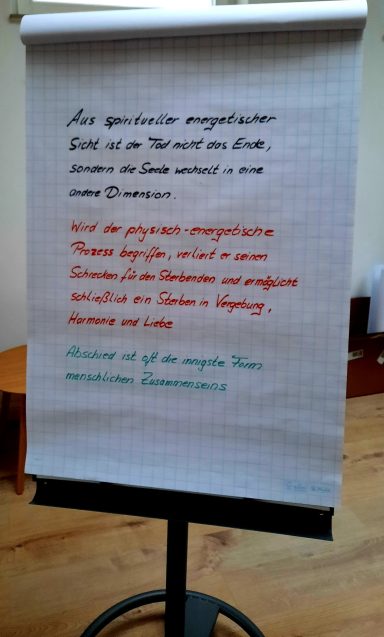 Aus spiritueller energetischer
Sicht ist der Tod nicht das Ende,
sondern die Seele wechselt in eine
andere Dimension.
Wird der physisch-energetische
Prozess begriffen, verliert er seinen
Schrecken für den Sterbenden und ermöglicht
schließlich ein Sterben in Vergebung,
Harmonie und Liebe
Abschied ist oft die innigste Form
menschlichen Zusammenseins